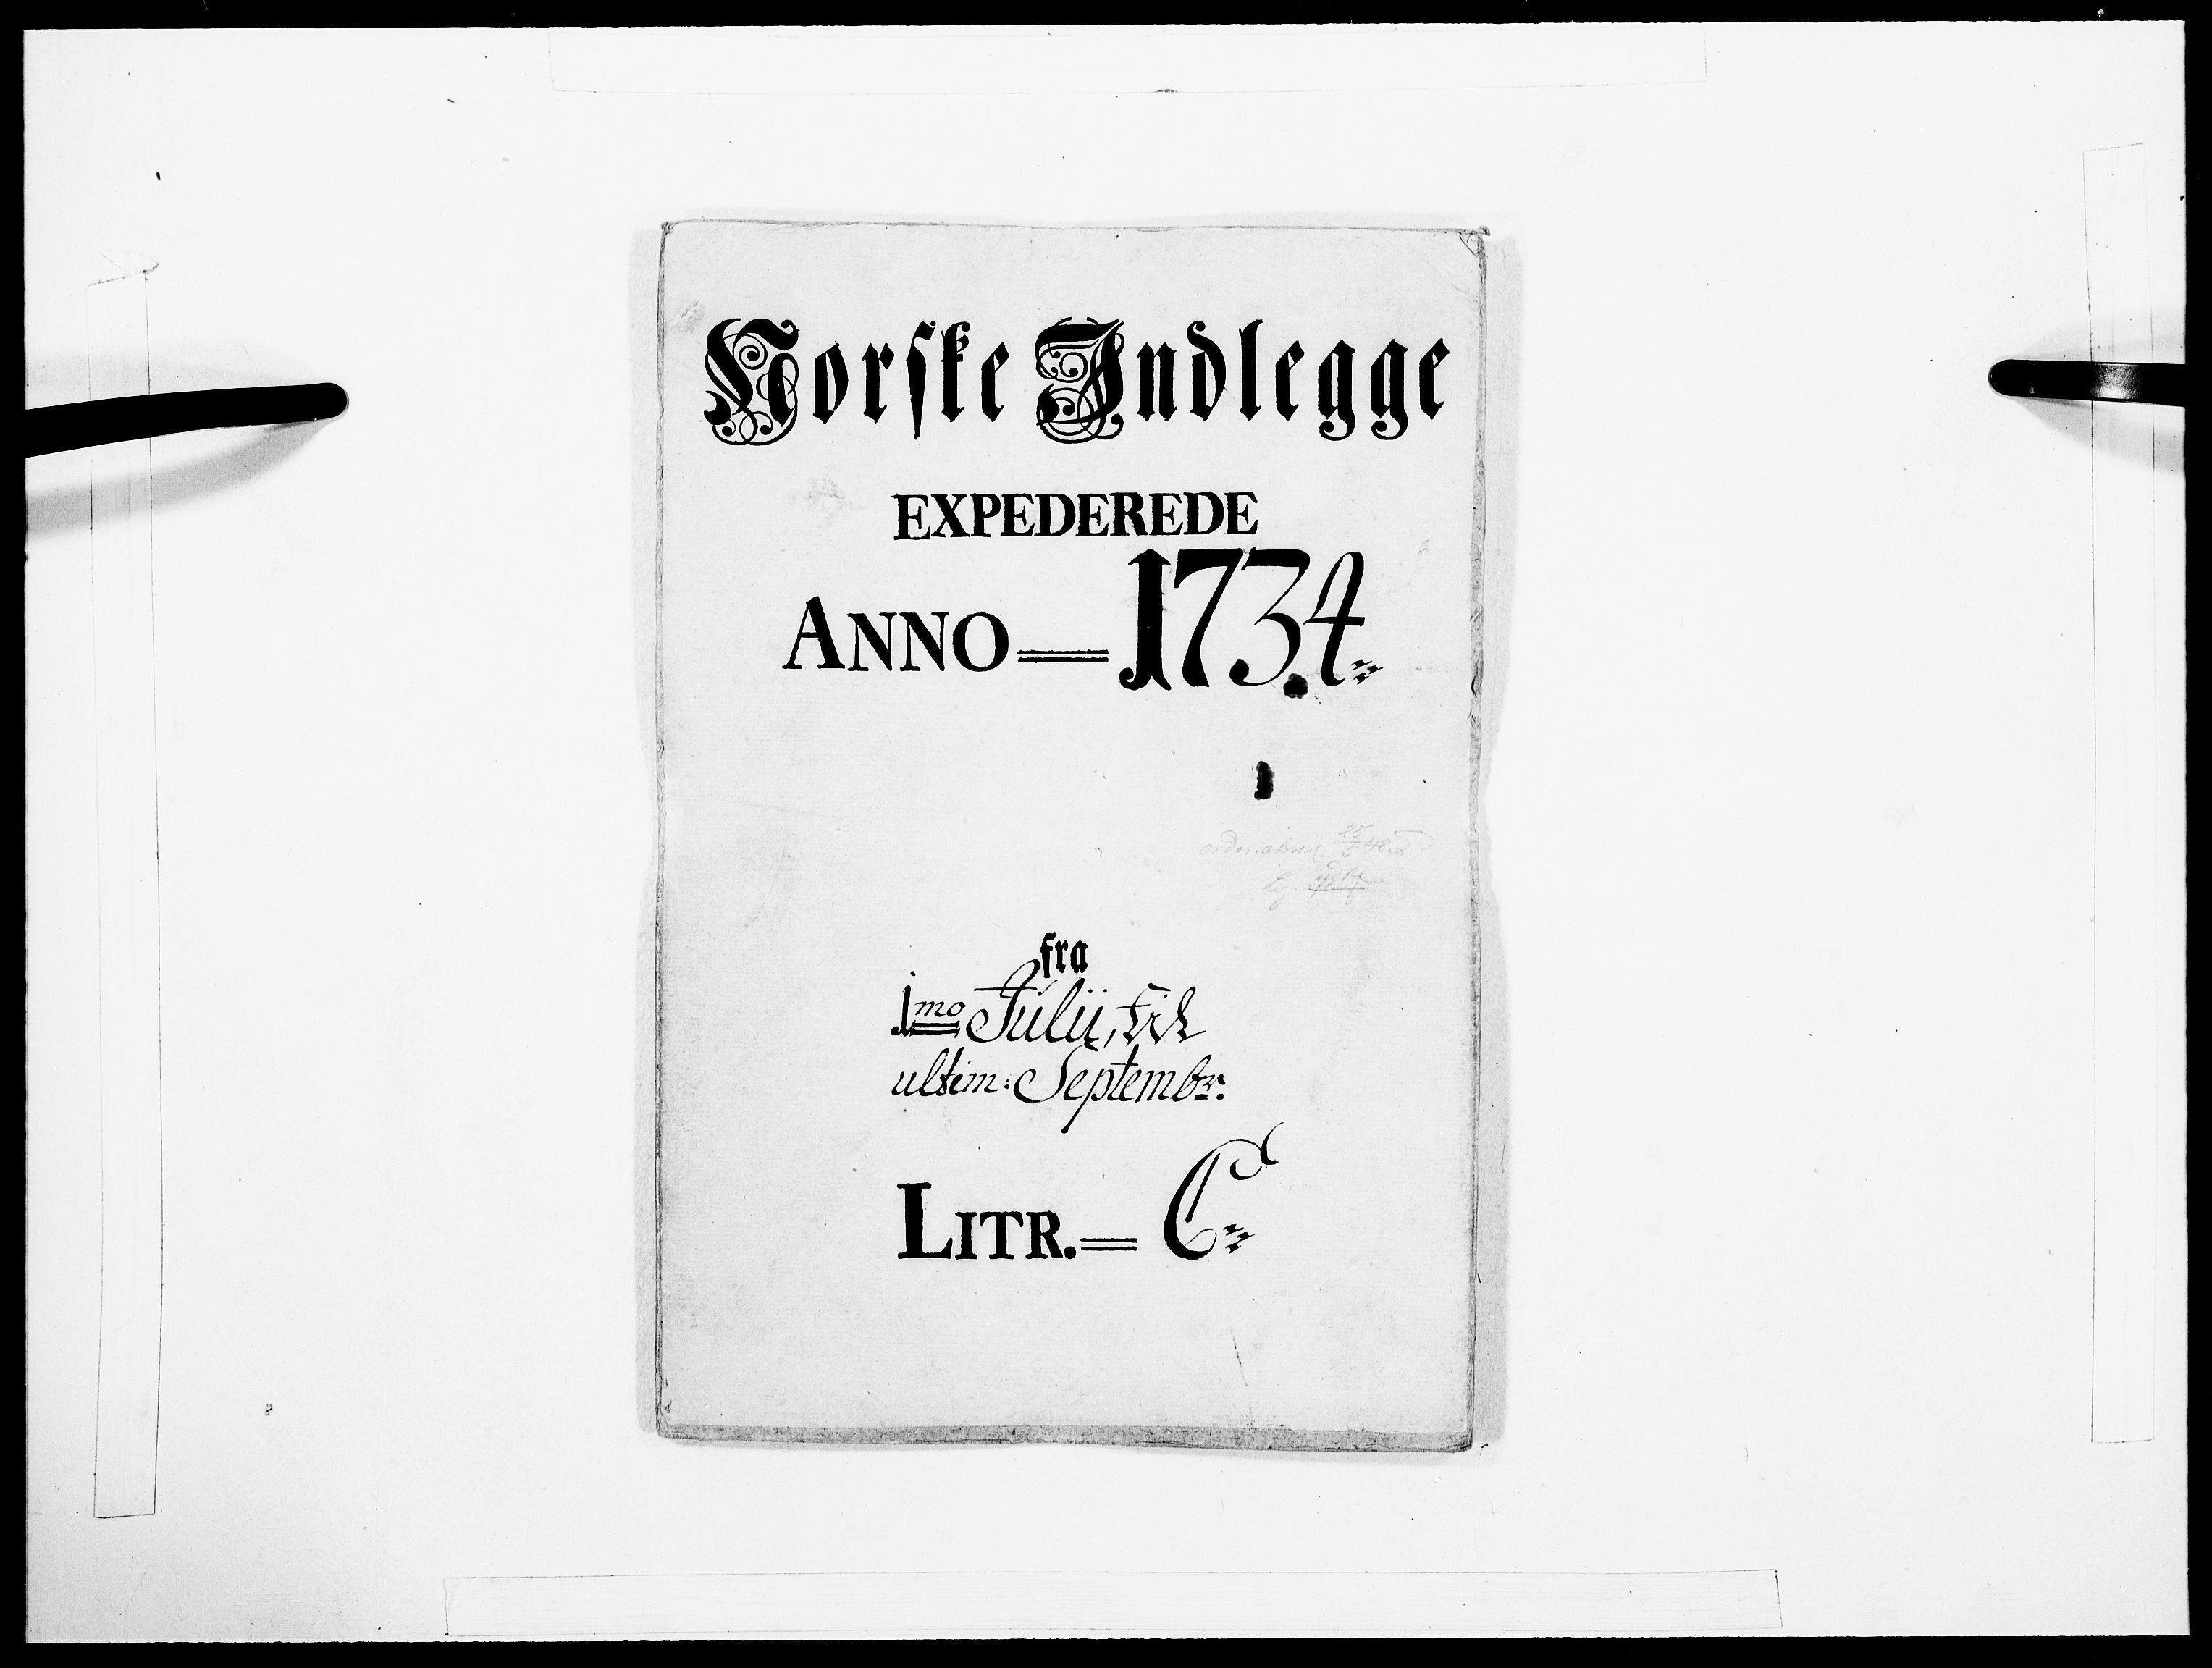 Norske Indlegge
EXPEDEREDE
ANNO = 1734
fra
1mo Julii, til
ultim: Septembr.
LITR. = C